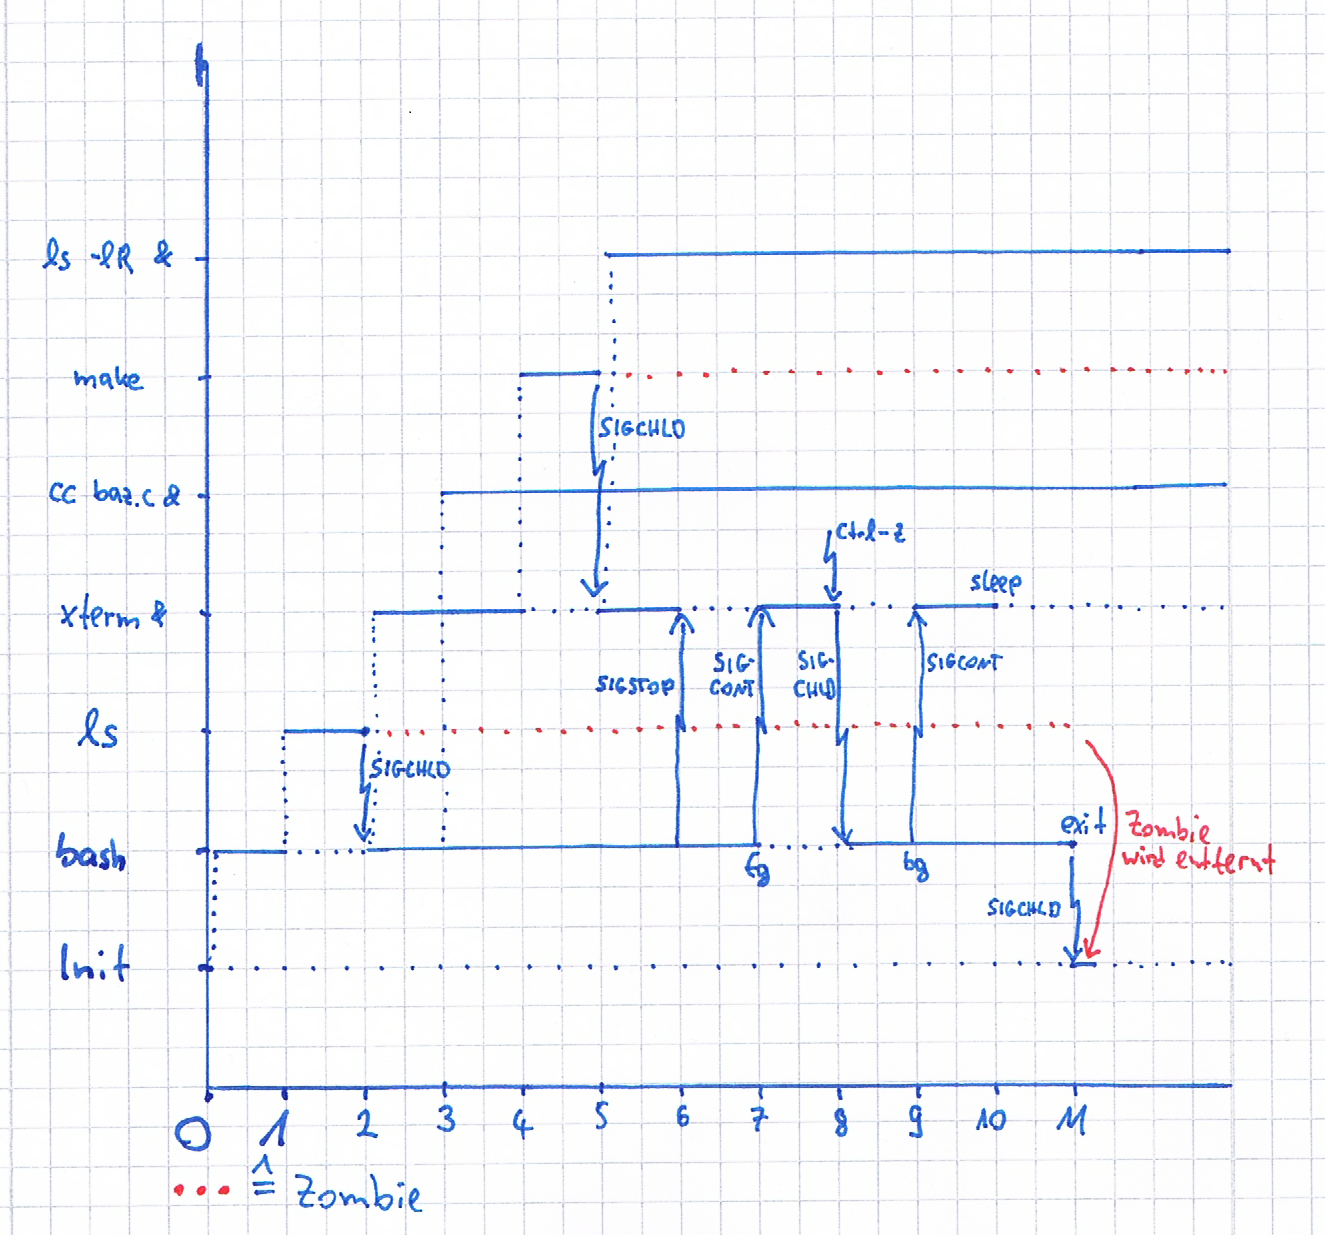 ls -lR &
make
SIGCHLD
cc baz.c &
Ctrl-z
sleep
xterm &
SIGSTOP
SIG-
CONT
SIG-
CHLD
SIGCONT
ls
SIGCHLD
exit
Zombie
wird entfernt
bash
fg
bg
SIGCHLD
Init
0 1 2 3 4 5 6 7 8 9 10 11
... ≙ Zombie